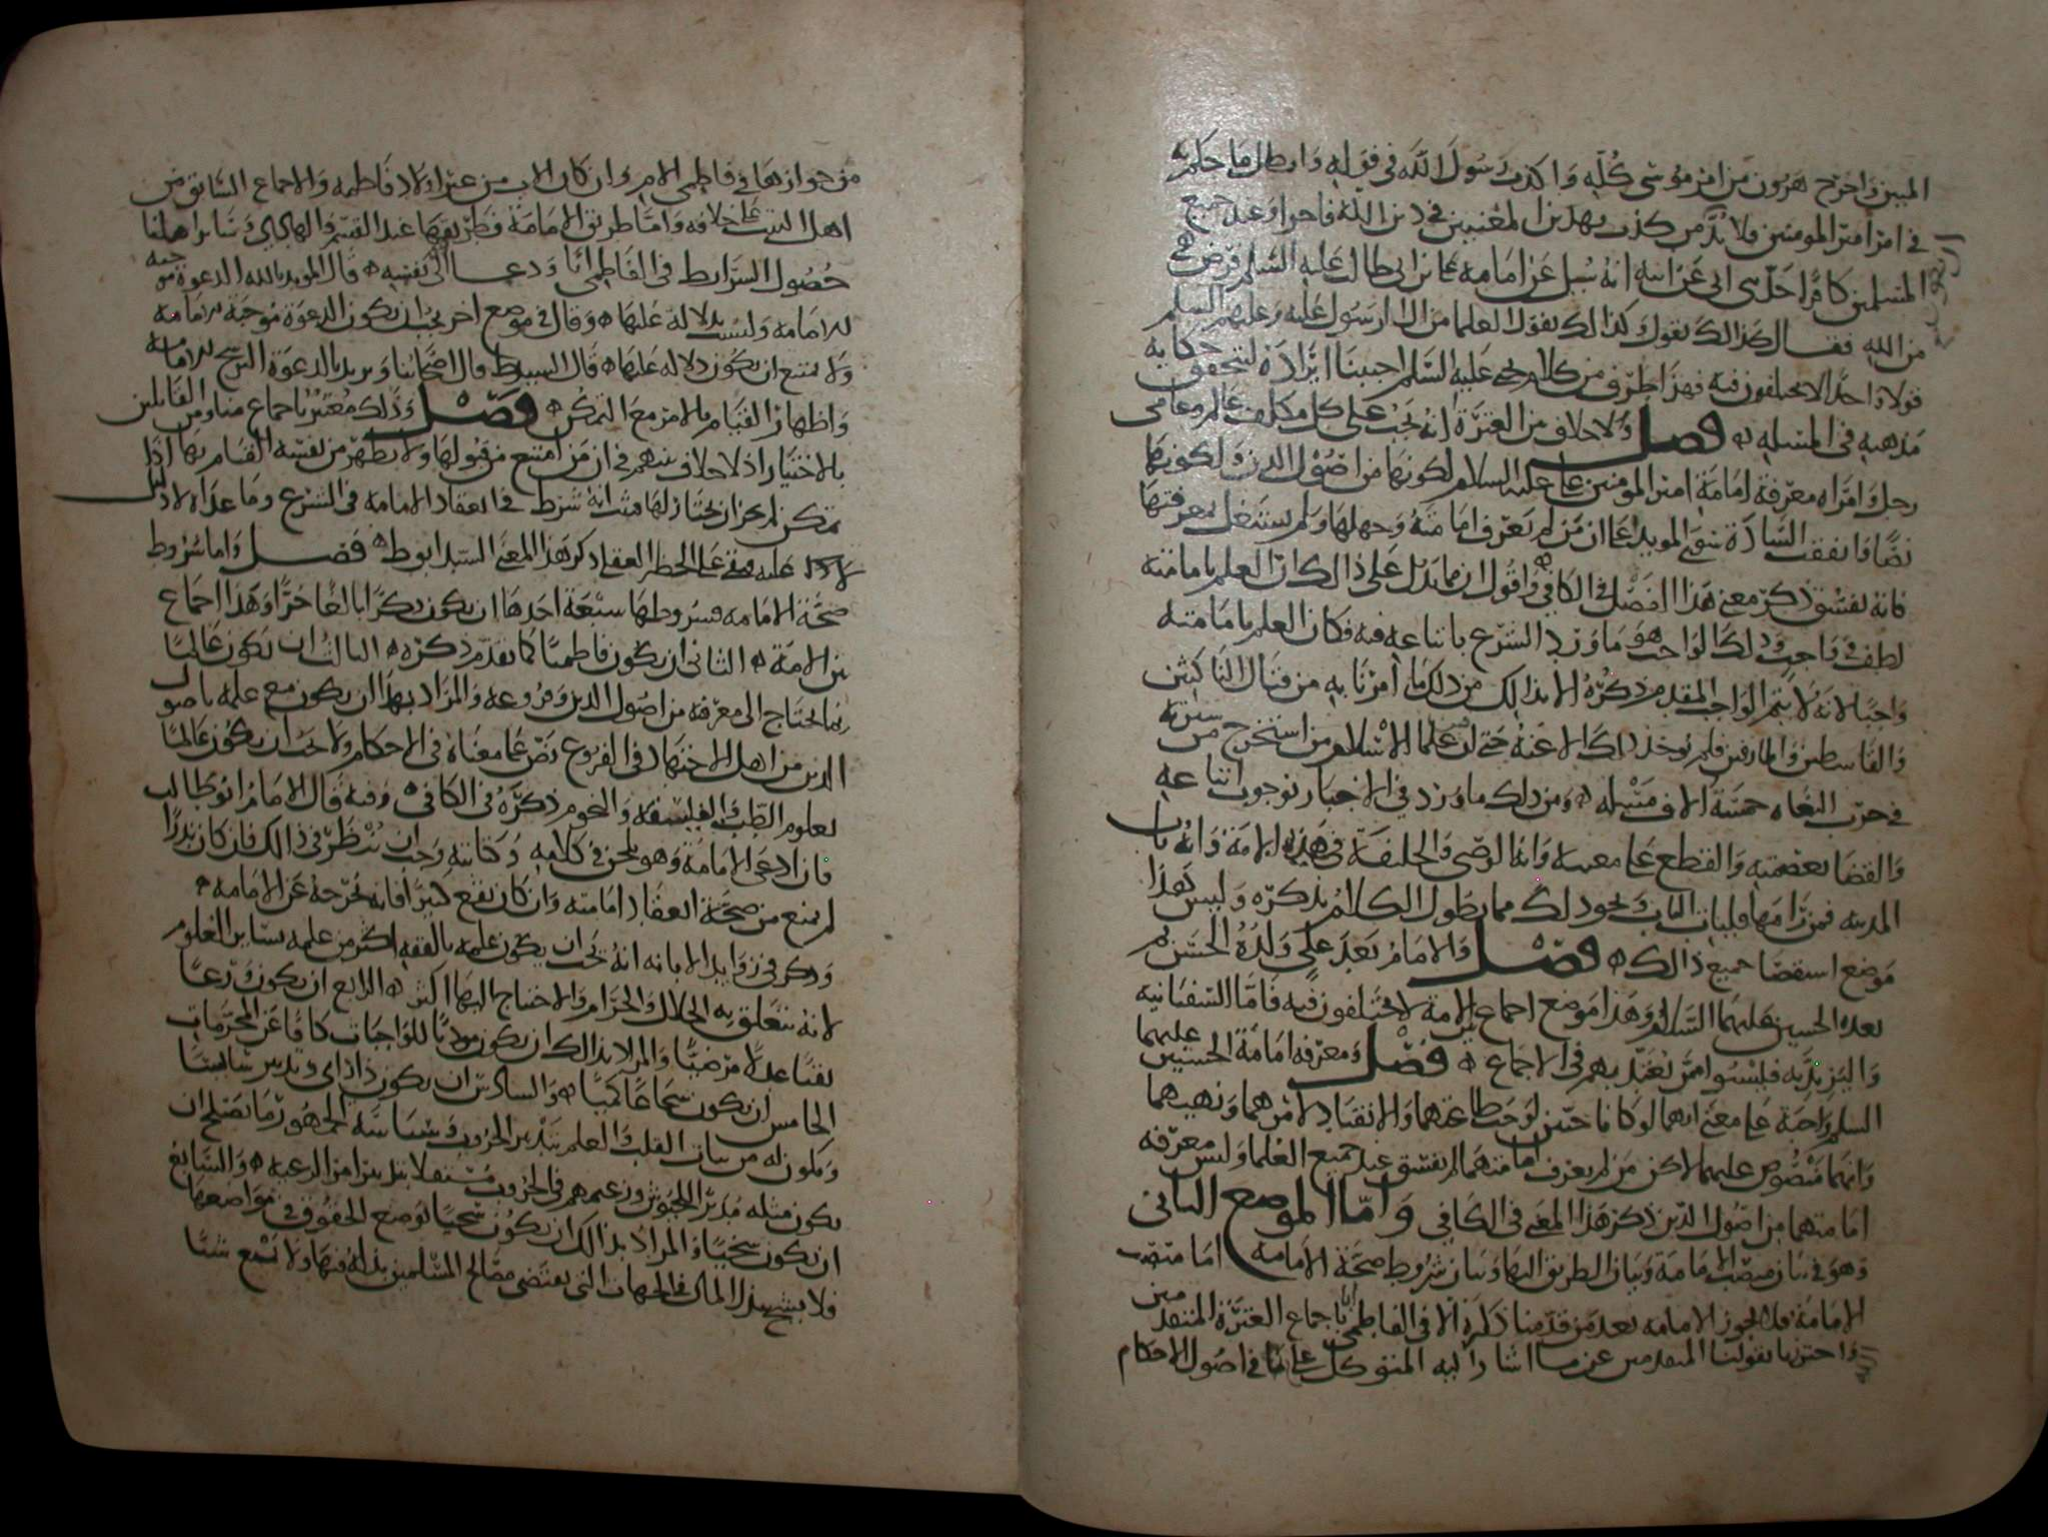 المبين واخرج هرون من امر موسى كله واكذب رسول الله في قوله وابطل ما حكم به
في امر امير المومنين فلا بد من كذب بهذين المعنيين في دين الله فاجرا وعند جميع
المسلمين كافرا حدثني ابي عن ابيه انه سئل عن امامة علي بن ابي طالب عليه السلم فرض هي
من الله فقال كذلك نقول وكذلك يقول العلما من ال الرسول عليه وعليهم السلم
قولا واحدا لا يختلفون فيه فهذا طرف من كلام يحيى عليه السلم احببنا ايراده لتحقق حكاية
مذهبه في المسئلة فصل ولا خلاف بين العترة انه يجب على كل مكلف عالم وعامي
رجل وامراه معرفة امامة امير المومنين علي عليه السلام لكونها من اصول الدين ولكونها
نصا واتفقت السادة سوى المويد على ان من لم يعرف امامته وجهلها ولم يشتغل بمعرفتها
فانه يفسق ذكر معنى هذا الفصل في الكافي واقول ان مما يدل على ذلك ان العلم بامامته
لطف في واجب وذلك الواجب هو ما ورد الشرع باتباعه فيه فكان العلم بامامته
واجبا لانه لا يتم الواجب المقدم ذكره الا بذلك من ذلك ما امرنا به من قتال الناكثين
والقاسطين والمارقين فلم يوخذ ذلك الا عنه حتى ان من علما الاسلام من استخرج من سيرته
في حرب البغاه خمسة الاف مسئلة ومن ذلك ما ورد في الاخبار بوجوب اتباعه
والقضا بعصمته والقطع على مغيبه وانه الوصي والخليفة في هذه الامة وانه باب
المدينه فمن رامها فليات الباب ونحو ذلك مما يطول الكلام بذكره وليس هذا
موضع استقصا جميع ذالك فصل والامام بعد علي ولده الحسن ثم
بعده الحسين عليهما السلام وهذا موضع اجماع بين الامة لا يختلفون فيه فاما السفيانية
واليزيدية فليسوا ممن يعتد بهم في الاجماع فصل ومعرفة امامة الحسنين عليهما
السلم واجبة على معنى انهما لو كانا حيين لوجب طاعتهما والانقياد لامرهما ونهيهما
وانهما منصوص عليهما لاكن من لم يعرف امامتهما لم يفسق عند جميع العلما وليس معرفة
امامتهما من اصول الدين ذكر هذا المعنى في الكافي واما الموضع الثاني
وهو في بيان منصب الامامة وبيان الطريق اليها وبيان شروط صحة الامامه اما منصب
الامامة فلا تجوز الامامه بعد من قدمنا ذكره الا في الفاطمي ابا باجماع العترة المتقدمين
واحترزنا بقولنا المتقدمين عن ما اشار اليه المتوكل على الله في اصول الاحكام
من جوازها في فاطمي الام وان كان الاب من غير اولاد فاطمه والاجماع السابق من
اهل البيت على خلافه واما طريق الامامة فطريقها عند القسم والهادي وسائر اهلنا
حصول الشرايط في الفاطمي ابا ودعا الى نفسه قال المويد بالله الدعوة موجبه
للامامه وليست بدلاله عليها وقال في موضع اخر يجب ان تكون الدعوة موجبة للامامة
ولا يمتنع ان يكون دلاله عليها قال السيد ط قال اصحابنا ويريد بالدعوة الترشح للامامه
واظهار القيام بالامر مع التمكن فصل وذلك معتبر باجماع منا ومن القايلين
بالاختيار اذ لا خلاف بينهم في ان من امتنع من قبولها ولا يظهر من نفسه القيام بها اذا
تمكن لم يجز ان يختار لها فثبت انه شرط في انعقاد الامامة في الشرع وما عداه لا دليل
عليه فبقي على الحظر العقلي ذكر هذا المعنى السيد ابو ط فصل واما شروط
صحة الامامه فشروطها سبعة احدها ان يكون ذكرا بالغا حرا وهذا اجماع
بين الامة الثاني ان يكون فاطميا كما تقدم ذكره الثالث ان يكون عالما
بما يحتاج الى معرفة من اصول الدين وفروعه والمراد بهذا ان يكون مع علمه باصول
الدين من اهل الاجتهاد في الفروع نص على معناه في الاحكام ولا يجب ان يكون عالما
بعلوم الطب والفلسفة والنجوم ذكره في الكافي وفيه قال الامام ابو طالب
فان ادعى الامامة وهو يلحن في كلامه وكتابته وجب ان ينظر في ذالك فان كان نادرا
لم يمنع من صحة انعقاد امامته وان كان يقع كثيرا فانه يخرجه عن الامامه
وذكر في زوايد الابانه انه يجب ان يكون علمه بالفقه اكثر من علمه بسائر العلوم
لانه يتعلق به الحلال والحرام والاحتياج اليها اكثر الرابع ان يكون ورعا
تقيا عدلا مرضيا والمراد بذالك ان يكون موديا للواجبات كافا عن المحرمات
الخامس ان يكون شجاعا كميا والسادس ان يكون ذا راي وتدبير سايسا
ويكون له من ثبات القلب والعلم بتدبير الحروب وسياسة الجمهور ما يصلح ان
يكون مثله مدبر الجيوش وزعيمهم في الحروب مستقلا بتدبير امر الرعيه والسابع
ان يكون سخيا والمراد بذالك ان يكون سخيا بوضع الحقوق في مواضعها
فلا يشح ببذل المال في الجهات التي يقتضي مصالح المسلمين بذله فيها ولا يمنع شيئا